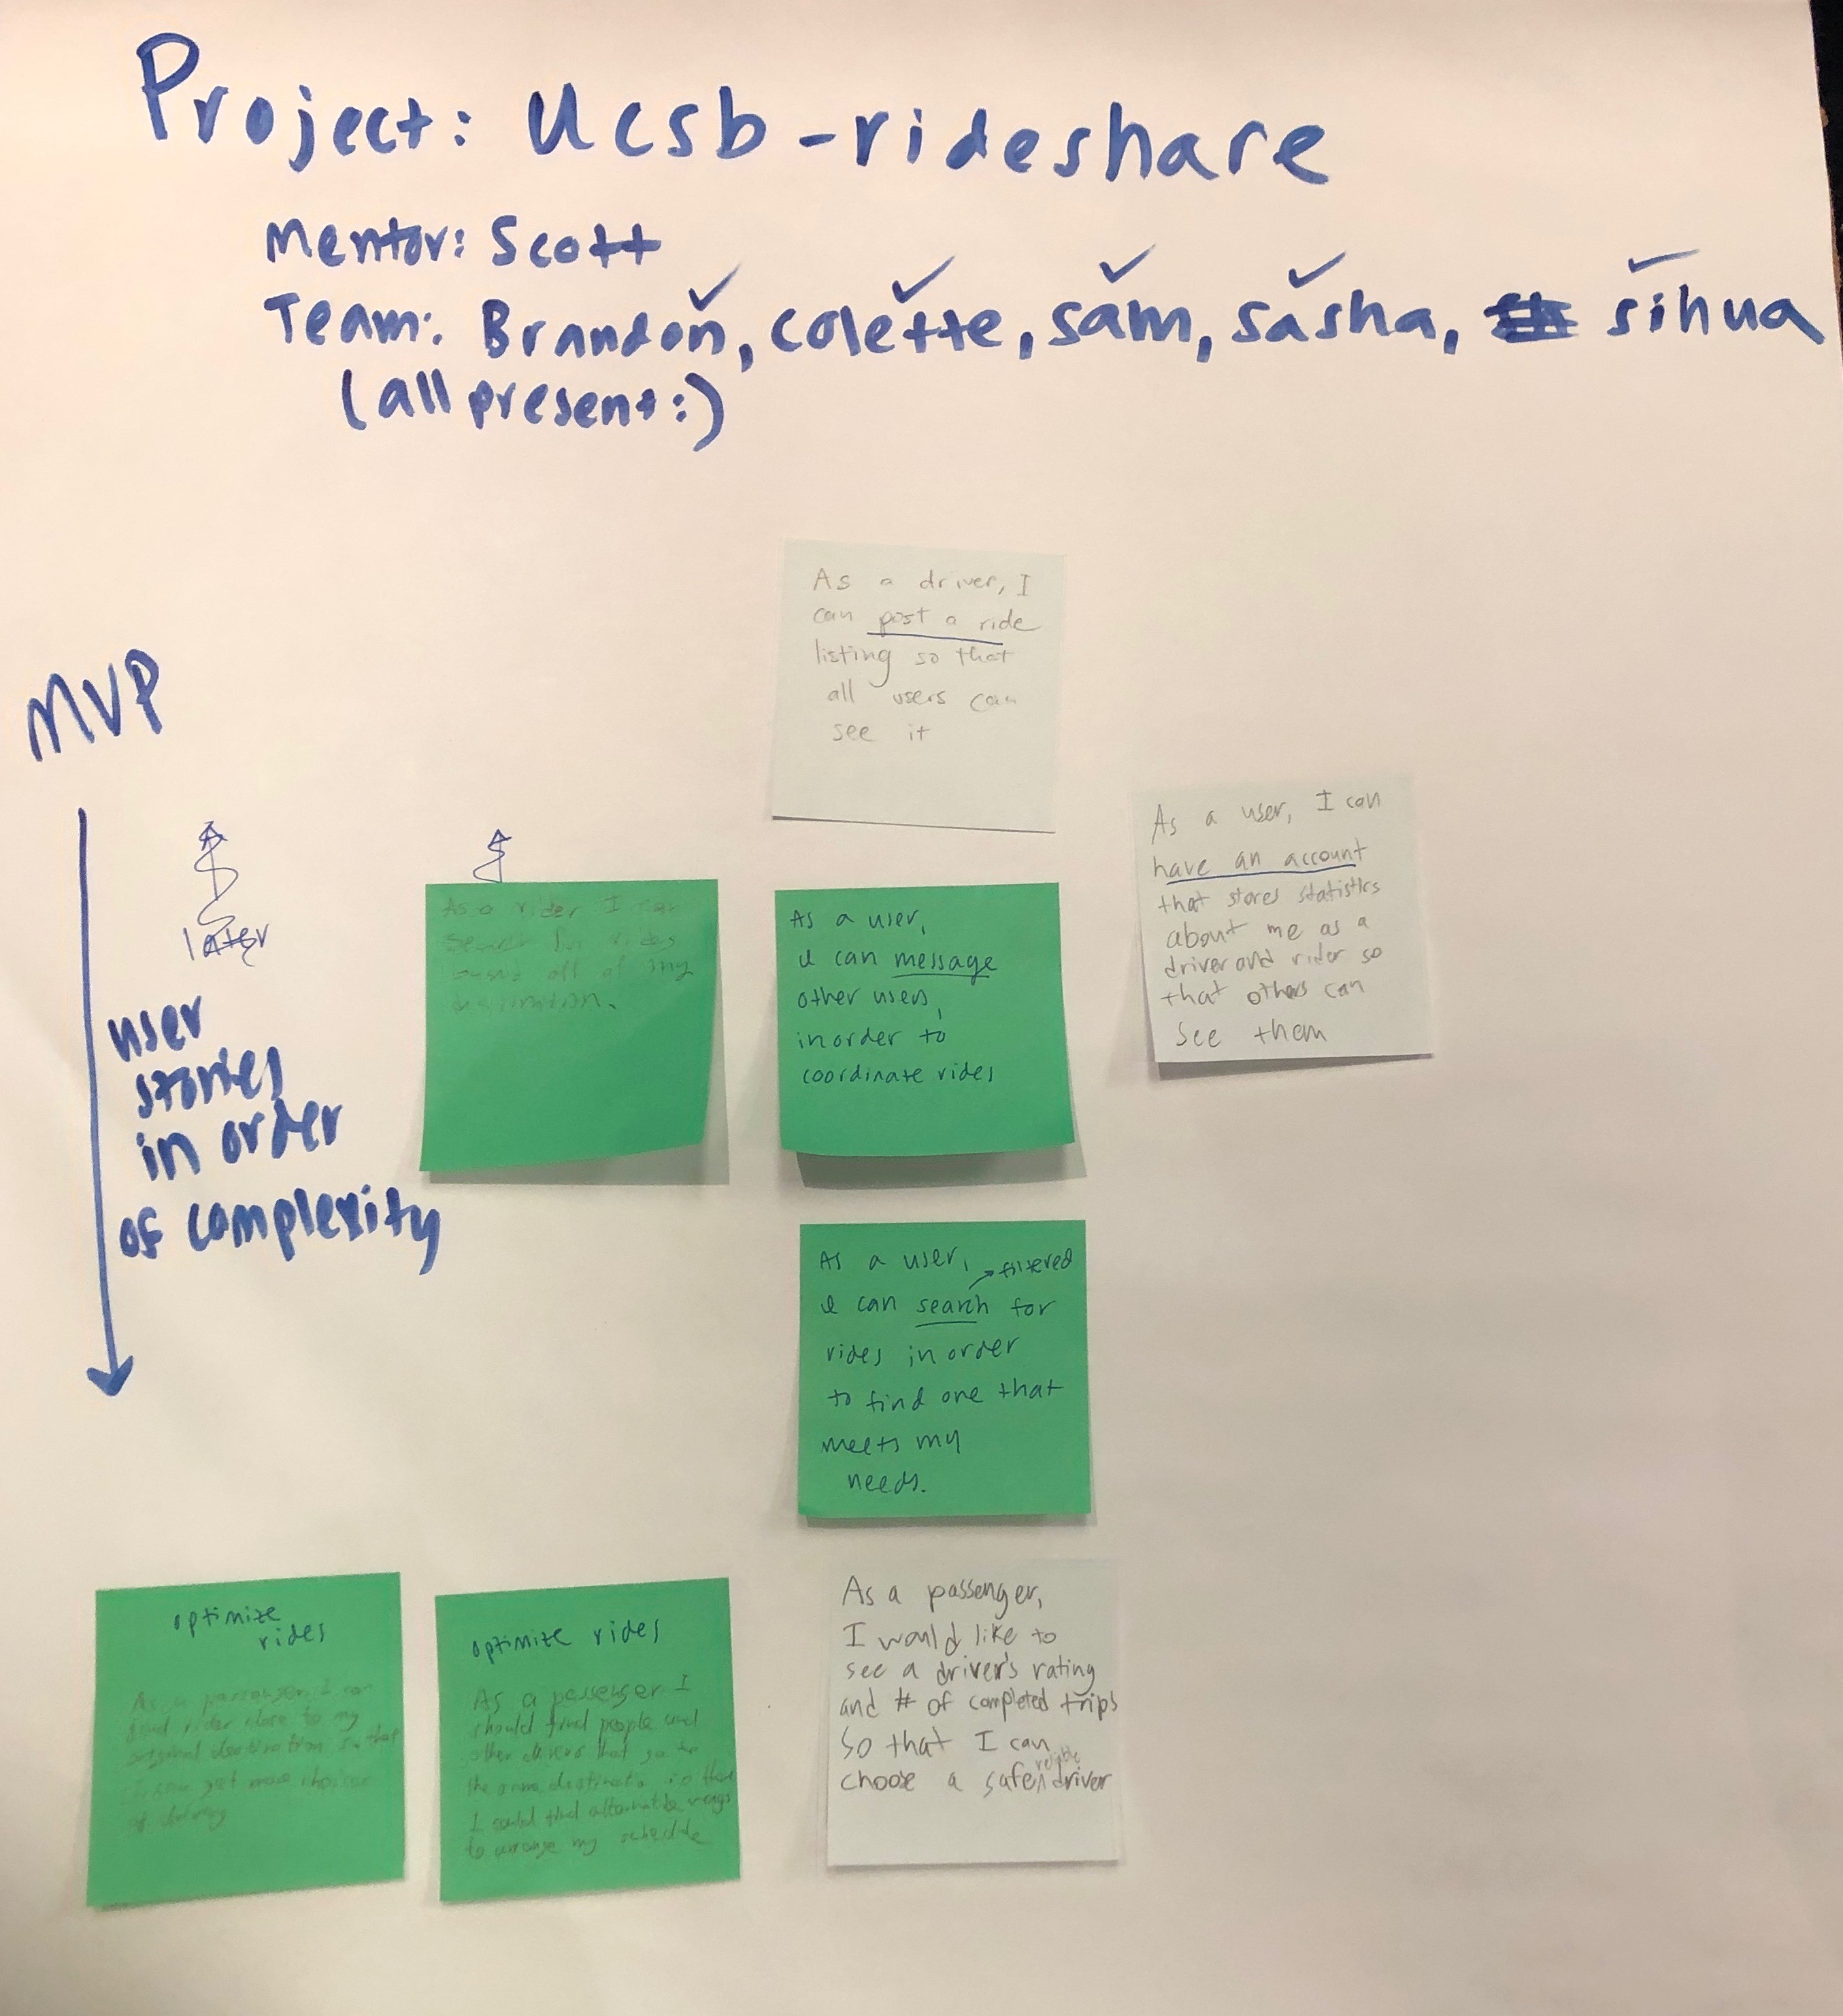 Project: Ucsb-rideshare
Mentor: Scott
Team: Brandon, colette, sam, sasha, sihua
(all present:)
MVP
later
user
stories
in order
of complexity
As a driver, I
can post a ride
listing so that
all users can
see it
As a rider I can
search for rides
based off of my
destination.
As a user,
I can message
other users,
in order to
coordinate rides
As a user, I can
have an account
that stores statistics
about me as a
driver and rider so
that others can
see them
As a user,
filtered
I can search for
rides in order
to find one that
meets my
needs.
optimize
rides
As a passenger I can
find rides close to my
original destination so that
I can get more choices
of driving
optimize rides
As a passenger I
should find people and
other drivers that go to
the same destinatio so that
I could find alternative ways
to arrange my schedule
As a passenger,
I would like to
see a driver's rating
and # of completed trips
so that I can
reliable
choose a safe, driver